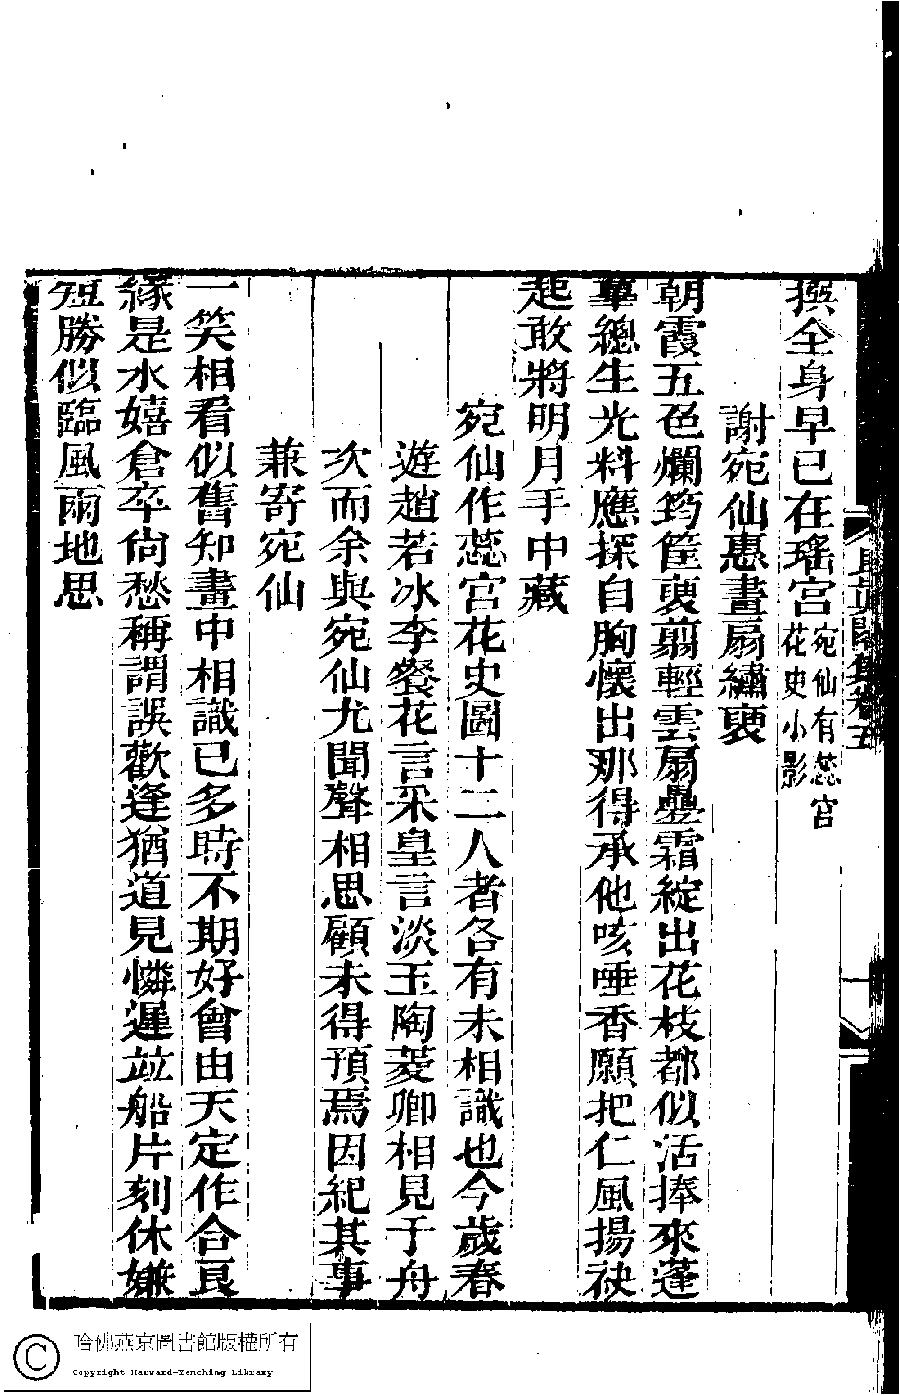 撰全身早已在瑤宮宛仙有蕊宮花史小影
謝宛仙惠畫扇繡裛
朝霞五色爛筠筐裛剪輕雲扇疊霜綻出花枝都似活捧來蓬
蓽總生光料應探自胸懷出那得承他咳唾香願把仁風揚袂
起敢將明月手中藏
宛仙作蕊宮花史圖十二人者各有未相識也今歲春
遊趙若冰李餐花言采皇言淡玉陶菱卿相見于舟
次而余與宛仙尤聞聲相思顧未得預焉因紀其事
兼寄宛仙
一笑相看似舊知畫中相識已多時不期好會由天定作合良
緣是水嬉倉卒尙愁稱謂誤歡逢猶道見憐遲竝船片刻休嫌
短勝似臨風雨地思
集卷五
哈佛燕京圖書館版權所有
Copyright Harvard-Yenching Library